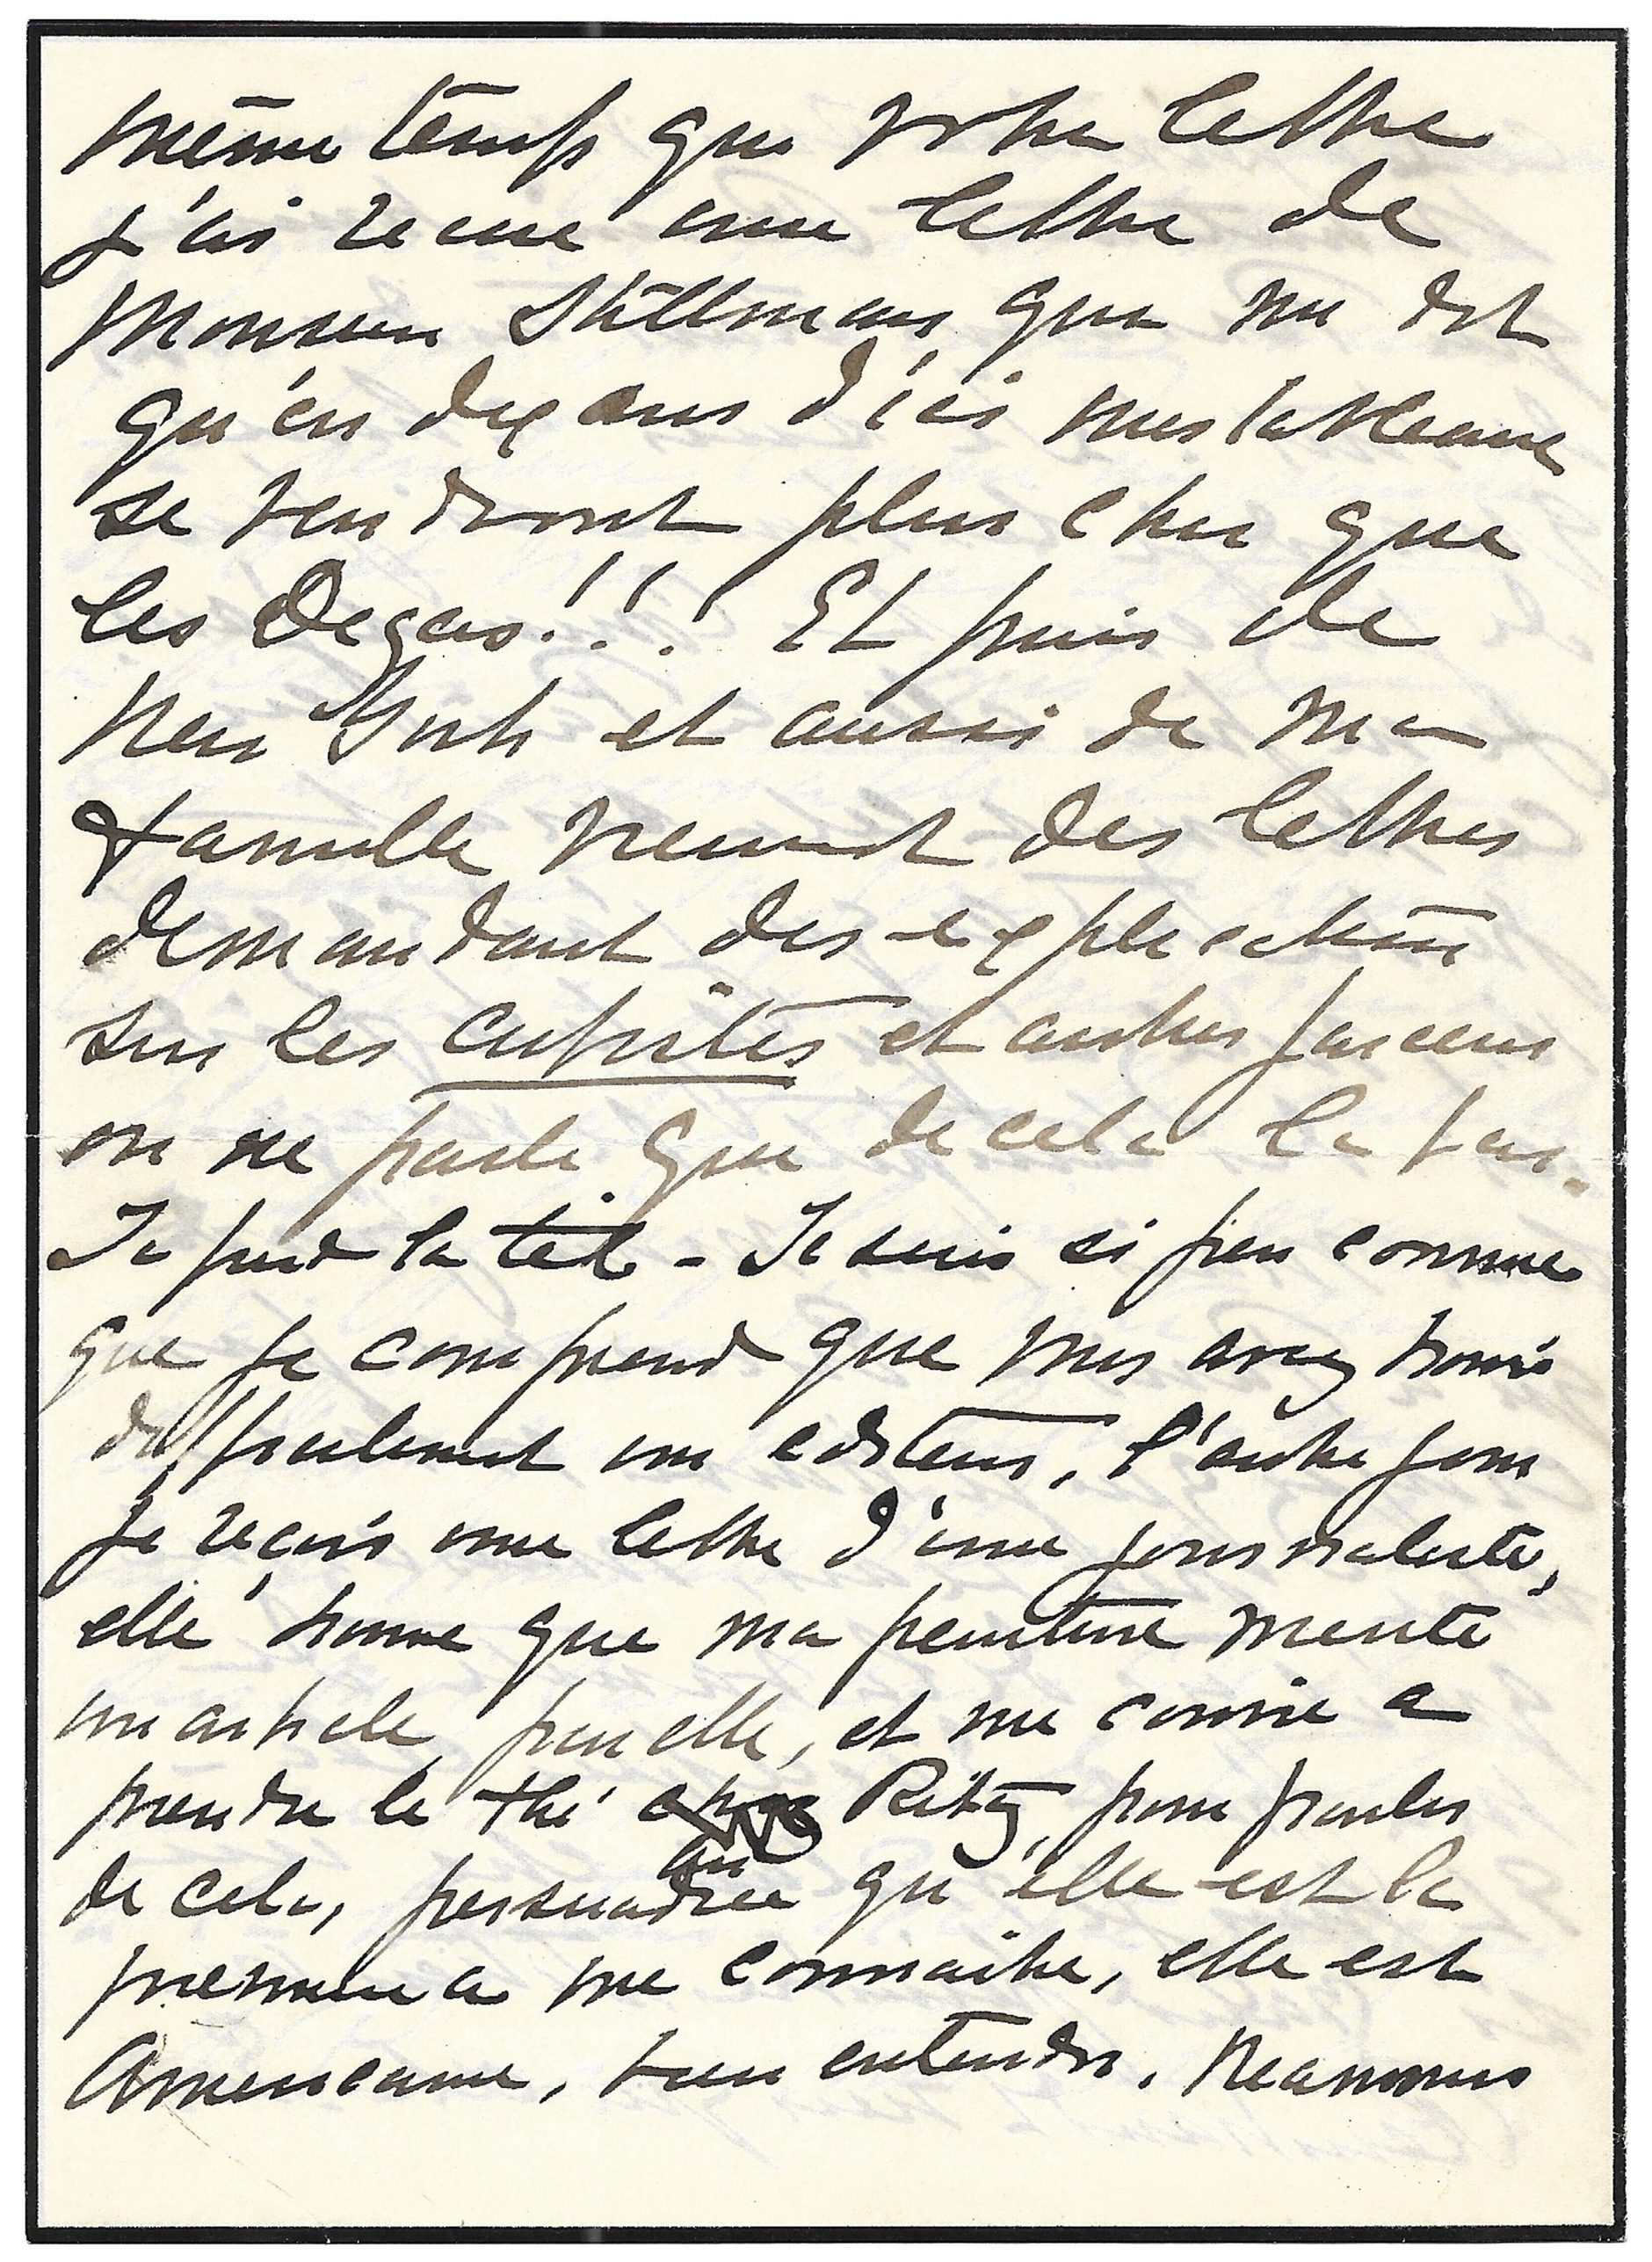 même temps que votre lettre
j'ai recue une lettre de
Monsieur Stillman que me dit
qu'en dix ans d'ici mes tableaux
se vendront plus cher que
les Degas!!! Et puis de
New York et aussi de ma
famille vienent des lettres
demandant des explications
sur les cubistes et autres farceurs
on ne parle que de cela la bas.
Je perd la tête – Je suis si peu connue
que je comprend que vous avez trouvé
difficilement un editeur, l'autre jour
je reçois une lettre d'une journaliste,
elle trouve que ma peinture merite
un article, pour elle, et me convie a
prendre le thé au Ritz, pour parler
de cela, persuadée qu'elle est la
premiere a me connaitre, elle est
Americaine, bien entendu. Neanmoins